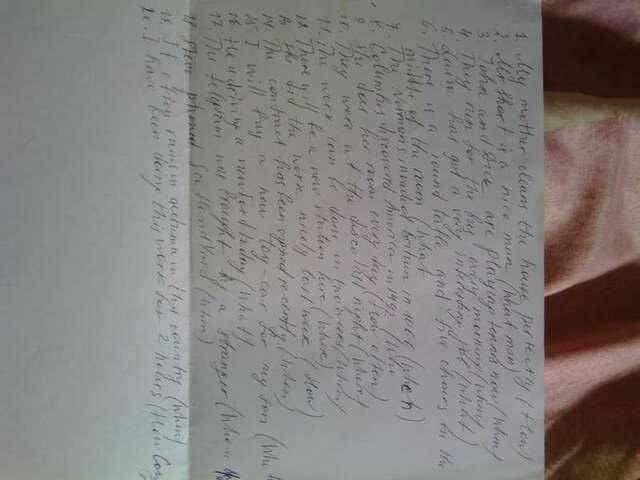 1. My mother cleans the house perfectly (How)
2. Mr Short is a nice man (What man)
3 John and Dick are playing tennis now (When)
4. They run for the bus every morning (When)
5. Laura has got a very job (What)
6. There is a round table and five chairs in the
middle of the room (What
7. The Normans invaded Britain in 1066 (
8. Columbus discovered America in 1492 (Who
9. She does her room every day (How often)
10. They were at the disco last night (Where)
11. The work can be done in two weeks (When)
12. There will be a new station here (Where)
13 She did the work nicely last week (How)
14. The contract has been signed recently (When)
15 I will buy a new toy-car for my son (Who
16 He is driving a new Ford today (What)
17. The telegram was brought by a stranger (When
18 Steve phoned (When)
19. It often rains in autumn in this country (When)
20. I have been doing this work for 2 hours (How Long